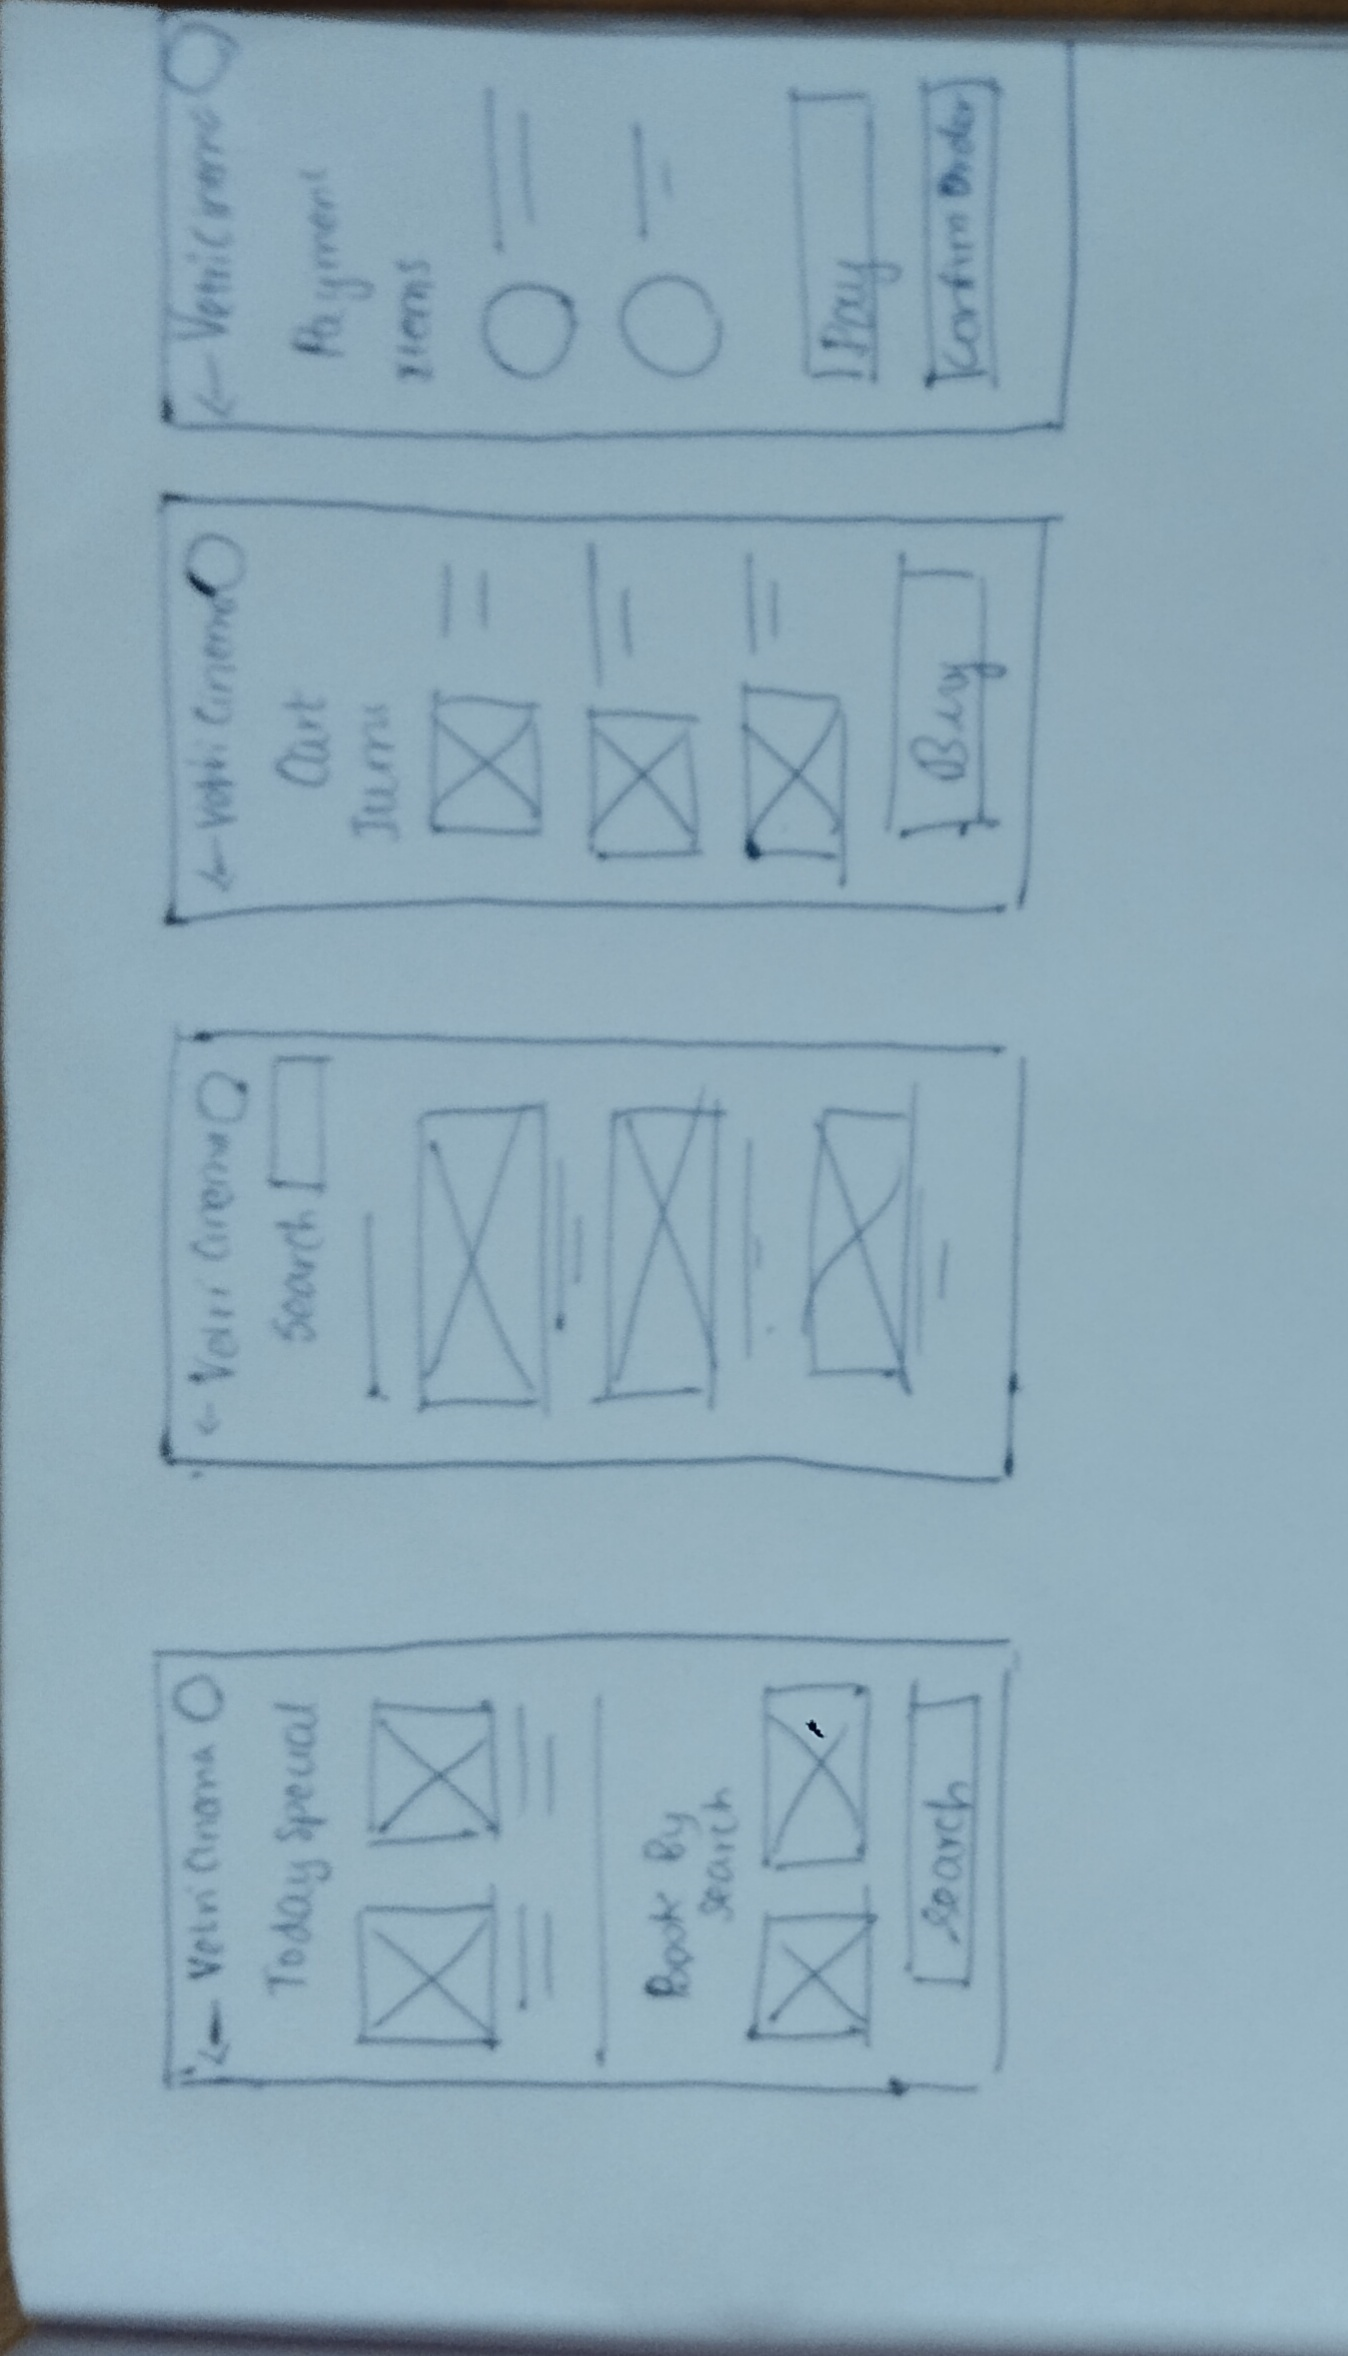 ← Vetri Cinema
Today Special
Book By
Search
Search
← Vetri Cinema
Search
← Vetri Cinema
Cart
Items
Buy
← Vetri Cinema
Payment
items
Pay
Confirm Order